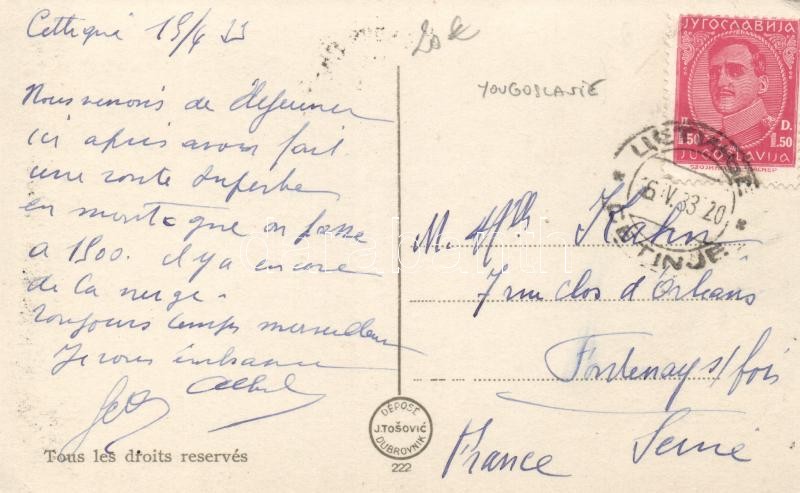 Cettigné 15/4 33
Nous venons de déjeuner
ici après avoir fait
une route superbe
en montagne on passe
à 1500. Il y a encore
de la neige.
toujours temps merveilleux
Je vous embrasse
Tous les droits reservés
DÉPOSÉ
J. TOŠOVIĆ
DUBROVNIK
222
20 k
YOUGOSLAVIE
ЈУГОСЛАВИЈА
1.50 D. 1.50
JUGOSLAVIJA
ЦЕТИЊЕ
V. 33. 20
CETINJE
M. Mlle Kahn
7 rue clos d'Orléans
Fontenay s/ bois
Seine
France